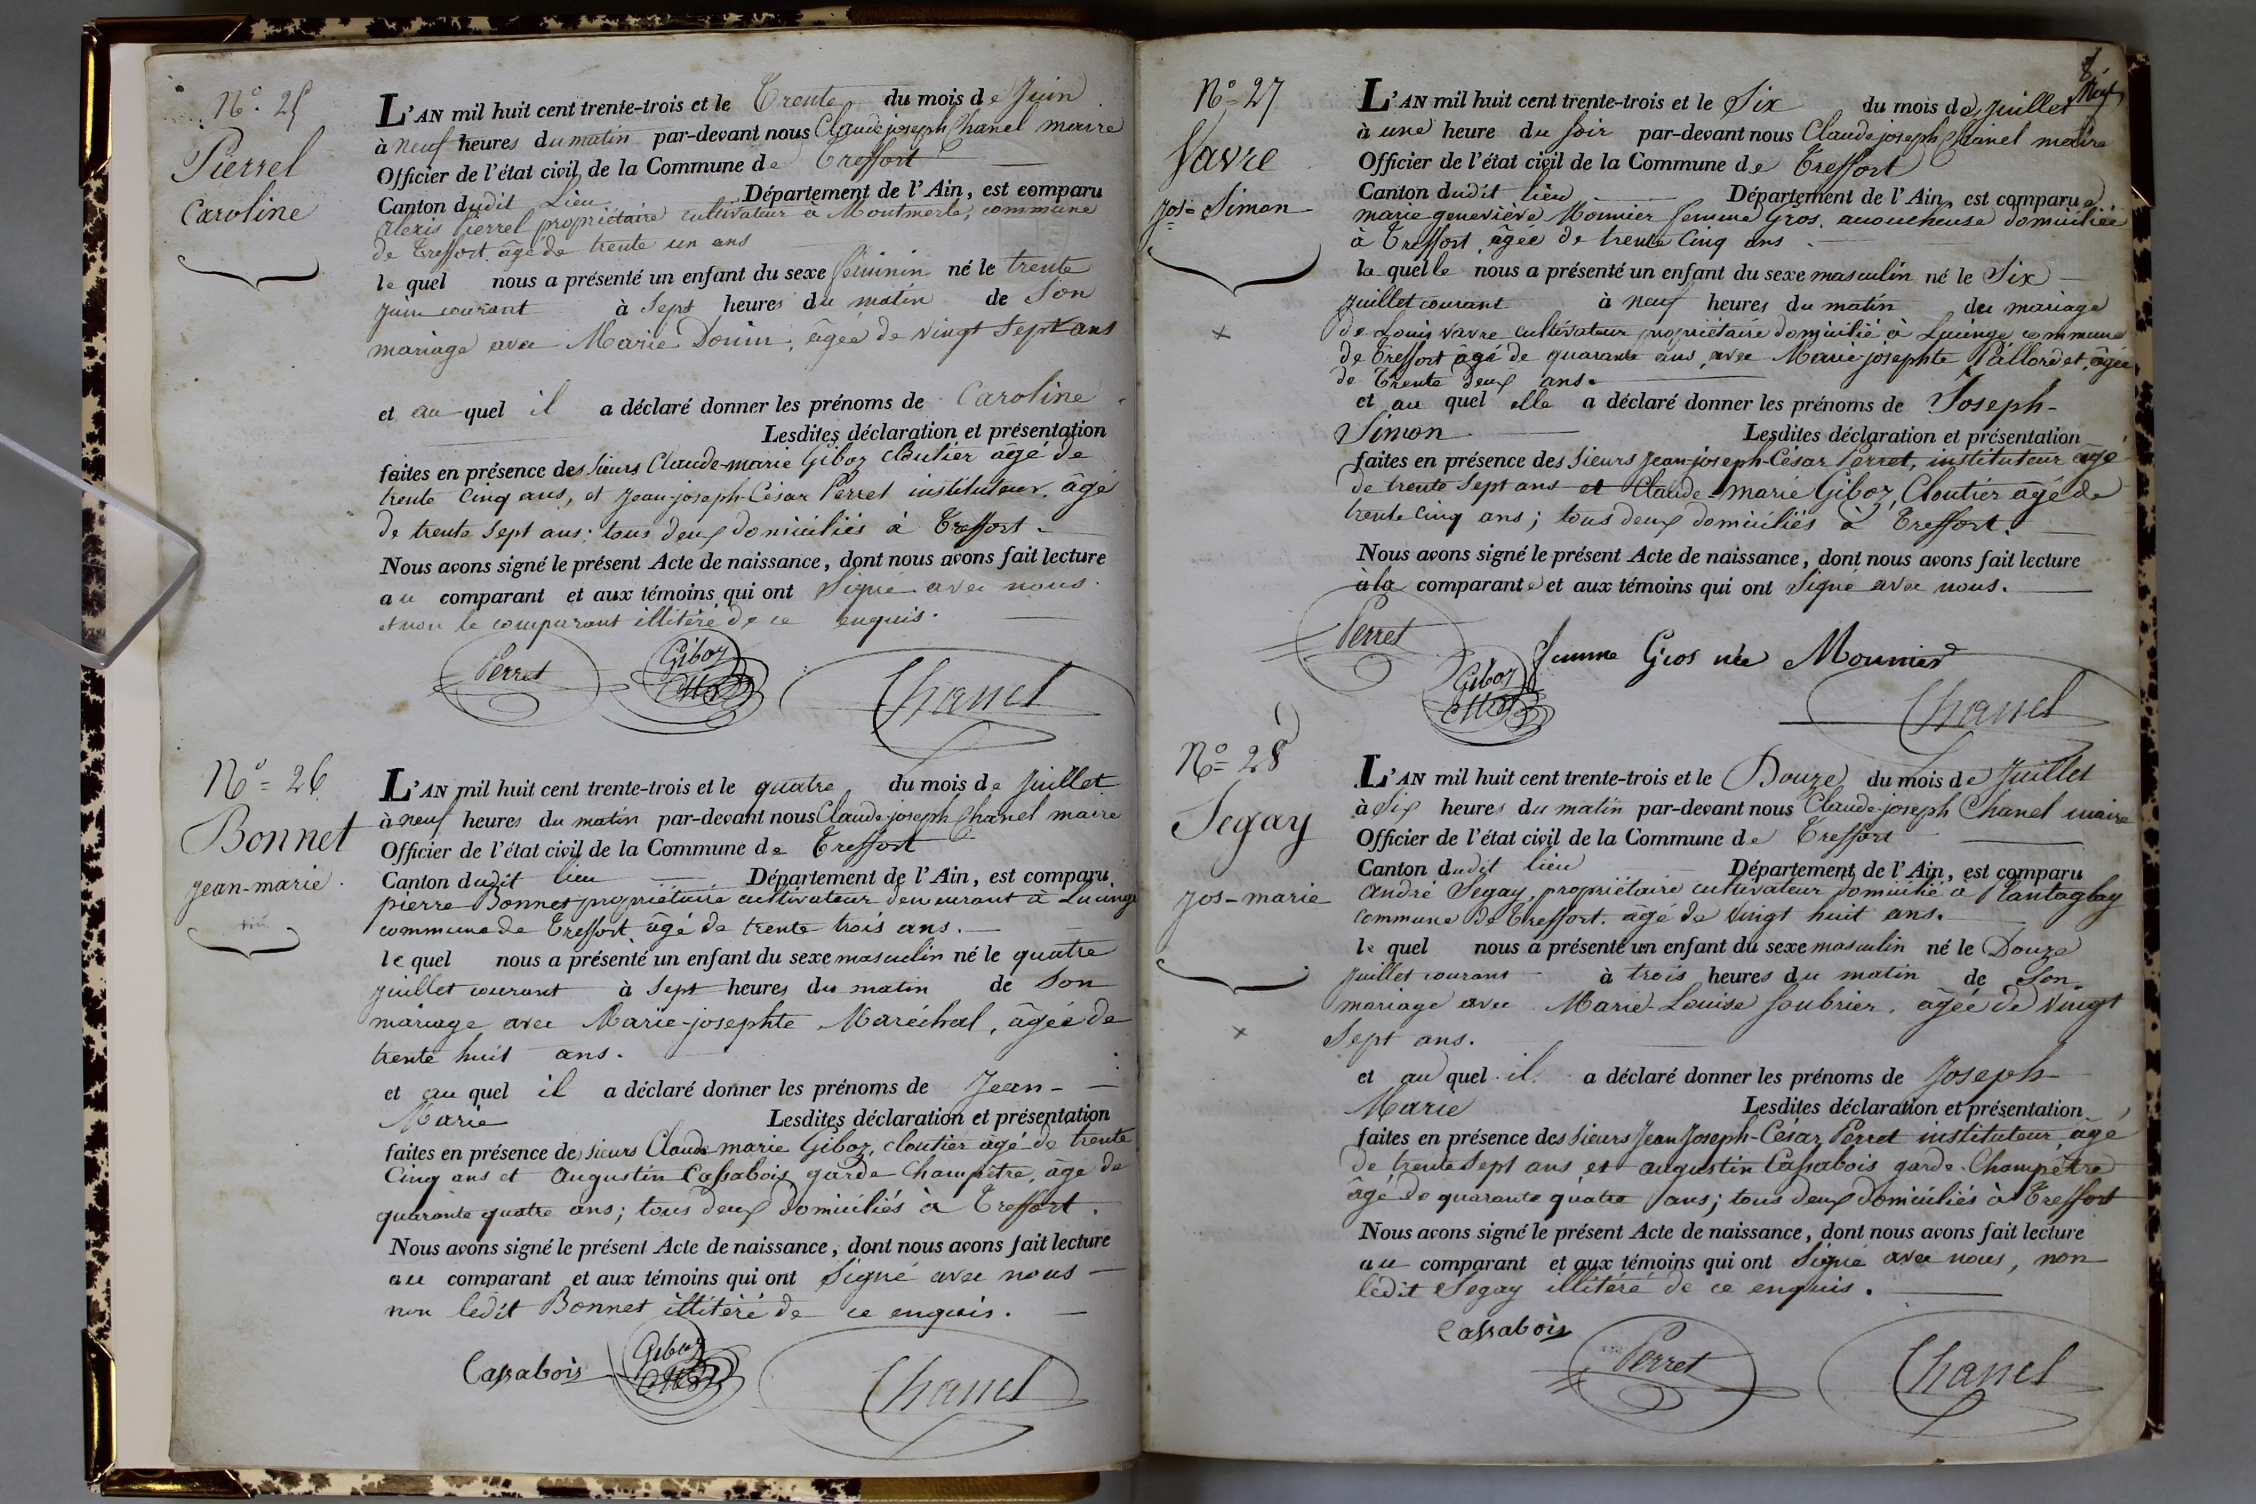 N° 25
Pierrel
Caroline
L'AN mil huit cent trente-trois et le Trente du mois de Juin
à neuf heures du matin par-devant nous Claude joseph Chanel maire
Officier de l'état civil de la Commune de Treffort
Canton dudit Lieu Département de l'Ain, est comparu
alexis Pierrel propriétaire cultivateur à Montmerle, commune
de Treffort âgé de trente un ans
lequel nous a présenté un enfant du sexe féminin né le trente
juin courant à Sept heures du matin de Son
mariage avec Marie Donin, âgée de vingt Sept ans
et au quel il a déclaré donner les prénoms de Caroline
Lesdites déclaration et présentation
faites en présence des sieurs Claude-marie Giboz cloutier âgé de
trente Cinq ans, et Jean-joseph-César Perret instituteur, âgé
de trente Sept ans; tous deux domiciliés à Treffort
Nous avons signé le présent Acte de naissance, dont nous avons fait lecture
au comparant et aux témoins qui ont Signé avec nous
et non le comparant illitéré de ce enquis.
Perret Giboz Chanel
N° = 26
Bonnet
jean-marie
L'AN mil huit cent trente-trois et le quatre du mois de Juillet
à neuf heures du matin par-devant nous Claude joseph Chanel maire
Officier de l'état civil de la Commune de Treffort
Canton dudit lieu Département de l'Ain, est comparu
pierre Bonnet propriétaire cultivateur demeurant à Lucinge
commune de Treffort âgé de trente trois ans.
lequel nous a présenté un enfant du sexe masculin né le quatre
juillet courant à Sept heures du matin de Son
mariage avec Marie-josephte Maréchal, âgée de
trente huit ans.
et au quel il a déclaré donner les prénoms de Jean-
Marie Lesdites déclaration et présentation
faites en présence des sieurs Claude marie Giboz, cloutier âgé de trente
Cinq ans et augustin Cassabois garde Champêtre, âgé de
quarante quatre ans; tous deux domiciliés à Treffort.
Nous avons signé le présent Acte de naissance, dont nous avons fait lecture
au comparant et aux témoins qui ont Signé avec nous
non ledit Bonnet illitéré de ce enquis.
Cassabois Giboz Chanel
neuf
N° = 27
Vavre
Jos= Simon
L'AN mil huit cent trente-trois et le Six du mois de Juillet
à une heure du soir par-devant nous Claude joseph Chanel maire
Officier de l'état civil de la Commune de Treffort
Canton dudit lieu Département de l'Ain, est comparue
marie geneviève Mounier femme Gros, accoucheuse domiciliée
à Treffort âgée de trente Cinq ans
laquelle nous a présenté un enfant du sexe masculin né le Six
juillet courant à neuf heures du matin du mariage
de Louis Vavre cultivateur propriétaire domicilié à Lucinge commune
de Treffort âgé de quarante ans, avec Marie-josephte Pallordet, âgée
de Trente deux ans.
et au quel elle a déclaré donner les prénoms de Joseph-
Simon Lesdites déclaration et présentation
faites en présence des Sieurs Jean-joseph-César Perret, instituteur âgé
de trente Sept ans et Claude-marie Giboz, Cloutier âgé de
trente Cinq ans; tous deux domiciliés à Treffort.
Nous avons signé le présent Acte de naissance, dont nous avons fait lecture
à la comparante et aux témoins qui ont Signé avec nous.
Perret Giboz femme Gros née Mounier
Chanel
N° = 28
Segay
Jos-marie
L'AN mil huit cent trente-trois et le Douze du mois de Juillet
à Six heures du matin par-devant nous Claude-joseph Chanel maire
Officier de l'état civil de la Commune de Treffort
Canton dudit lieu Département de l'Ain, est comparu
andré Segay, propriétaire cultivateur domicilié à Plantaglay
commune de Treffort. âgé de vingt huit ans.
lequel nous a présenté un enfant du sexe masculin né le Douze
juillet courant à trois heures du matin de Son
mariage avec Marie-Louise Soubrier, âgée de vingt
Sept ans.
et au quel il a déclaré donner les prénoms de Joseph-
Marie Lesdites déclaration et présentation
faites en présence des Sieurs Jean Joseph-César Perret instituteur, âgé
de trente Sept ans et augustin Cassabois garde-Champêtre
âgé de quarante quatre ans; tous deux domiciliés à Treffort
Nous avons signé le présent Acte de naissance, dont nous avons fait lecture
au comparant et aux témoins qui ont Signé avec nous, non
ledit Segay illitéré de ce enquis.
Cassabois
Perret Chanel